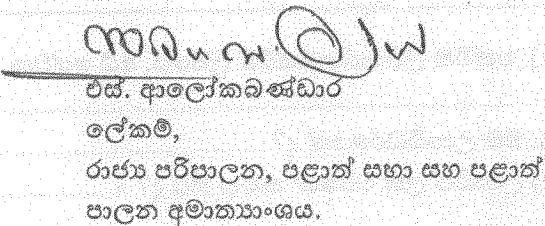 එස්. ආලෝකබණ්ඩාර
ලේකම්,
රාජ්‍ය පරිපාලන, පළාත් සභා සහ පළාත්
පාලන අමාත්‍යාංශය.